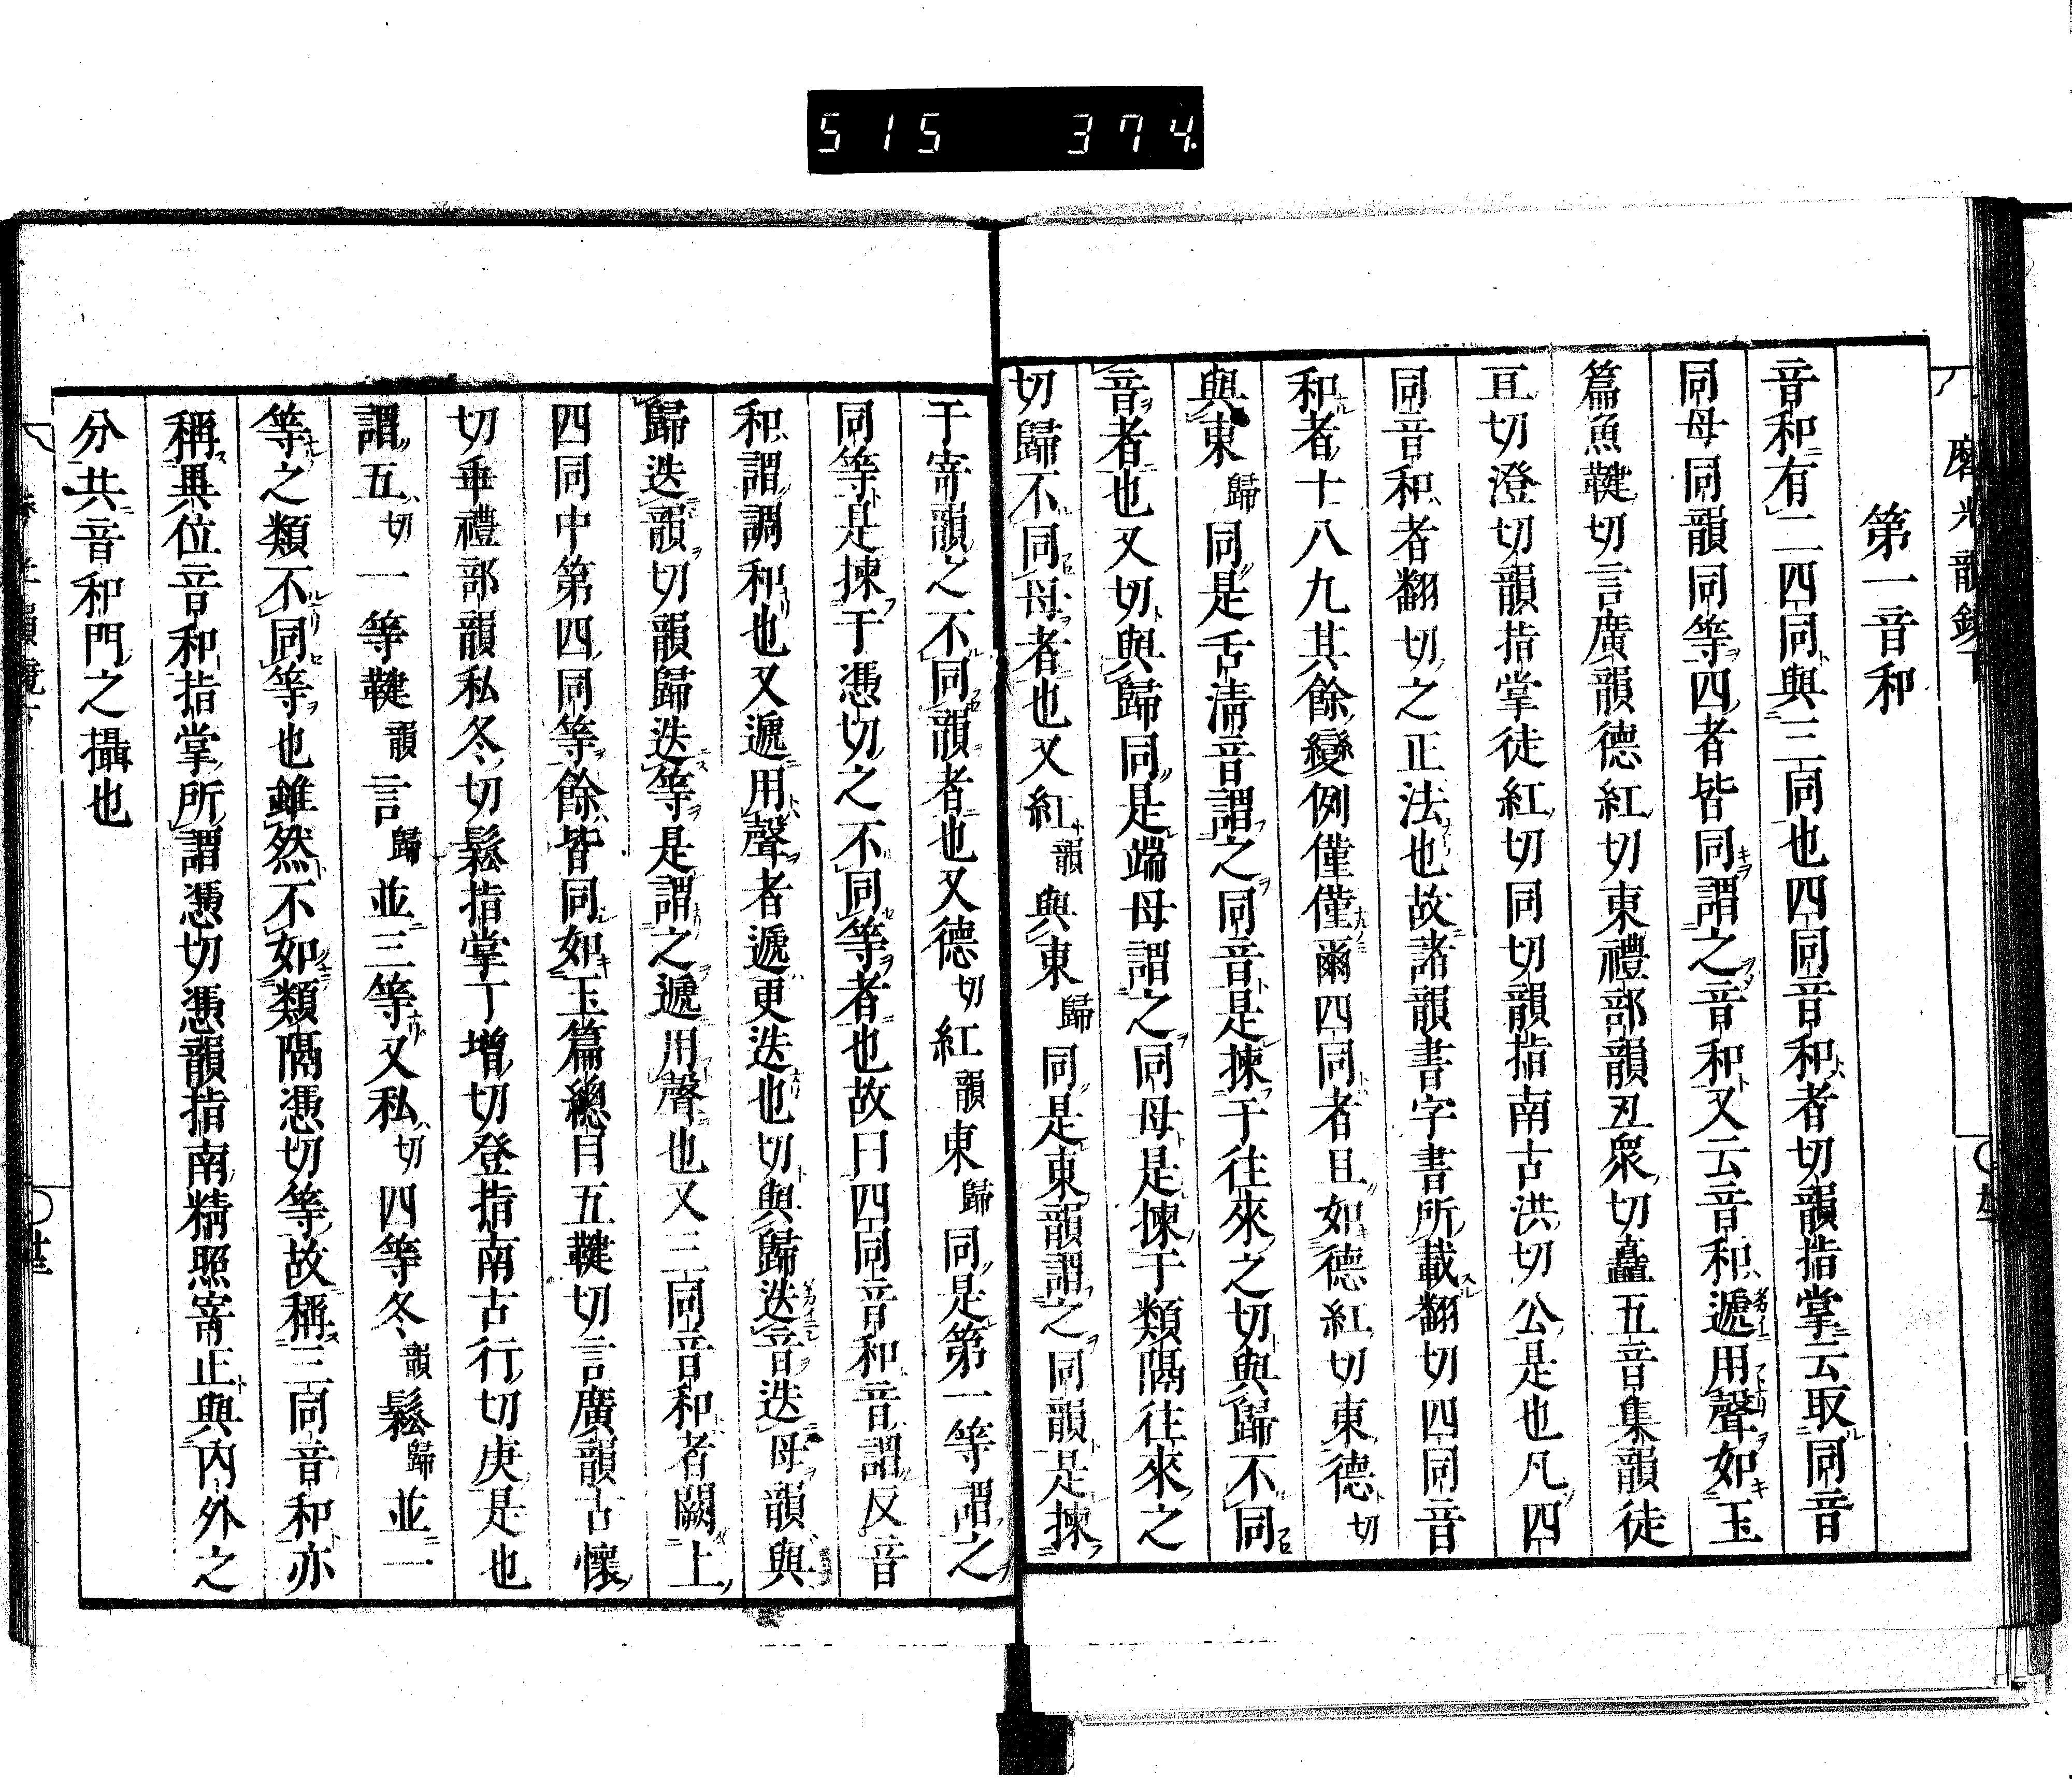 515 374.
磨光韻鏡下
第一音和
音和有二四同與三同也四同音和者切韻指掌云取同音
同母同韻同等四者皆同謂之音和又云音和遞用聲如玉
篇魚鞬切言廣韻德紅切東禮部韻丑衆切矗五音集韻徒
亘切澄切韻指掌徒紅切同切韻指南古洪切公是也凡四
同音和者翻切之正法也故諸韻書字書所載翻切四同音
和者十八九其餘變例僅僅爾四同者且如德紅切東德切
與東歸同是舌淸音謂之同音是揀于往來之切與歸不同
音者也又切與歸同是端母謂之同母是揀于類隔往來之
切歸不同母者也又紅韻與東歸同是東韻謂之同韻是揀
于寄韻之不同韻者也又德切紅韻東歸同是第一等謂之
同等是揀于憑切之不同等者也故曰四同音和音謂反音
和謂調和也又遞用聲者遞更迭也切與歸迭音迭母韻與
歸迭韻切韻歸迭等是謂之遞用聲也又三同音和者闕上
四同中第四同等餘皆同如玉篇總目五鞬切言廣韻古懷
切乖禮部韻私冬切鬆指掌丁增切登指南古行切庚是也
謂五切一等鞬韻言歸並三等又私切四等冬韻鬆歸並一
等之類不同等也雖然不如類隔憑切等故稱三同音和亦
稱異位音和指掌所謂憑切憑韻指南精照寄正與內外之
分共音和門之攝也